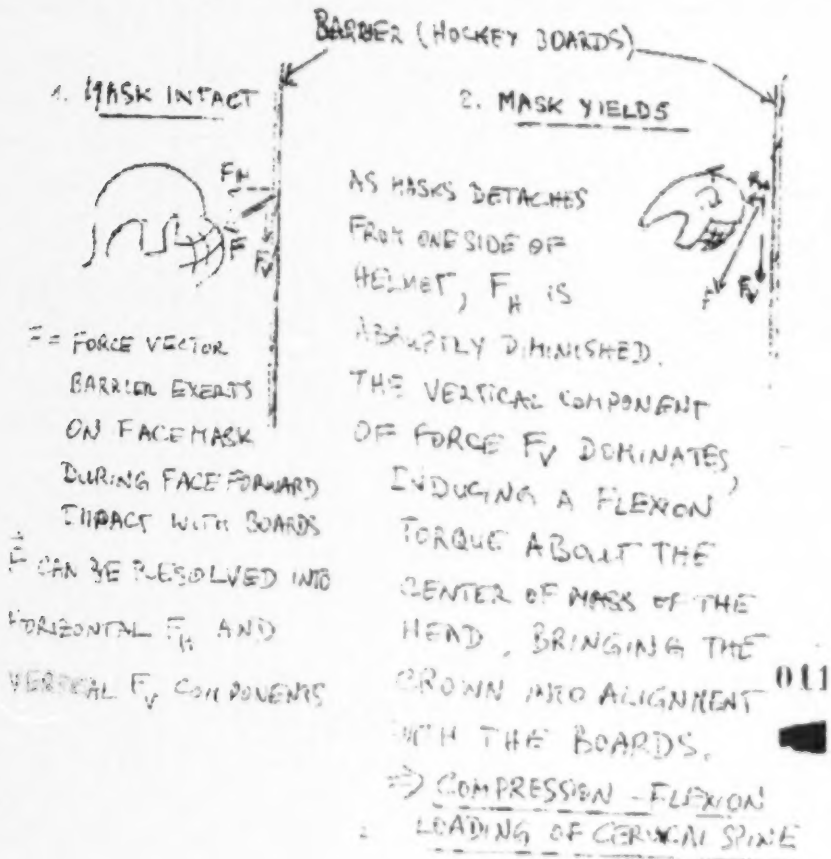 BARRIER (HOCKEY BOARDS)
1. MASK INTACT
F_H
F
F_V
F = FORCE VECTOR
BARRIER EXERTS
ON FACEMASK
DURING FACE FORWARD
IMPACT WITH BOARDS
F⃗ CAN BE RESOLVED INTO
HORIZONTAL F_H AND
VERTICAL F_V COMPONENTS
2. MASK YIELDS
F_H
F
F_V
AS MASKS DETACHES
FROM ONE SIDE OF
HELMET, F_H IS
ABRUPTLY DIMINISHED.
THE VERTICAL COMPONENT
OF FORCE F_V DOMINATES,
INDUCING A FLEXION
TORQUE ABOUT THE
CENTER OF MASS OF THE
HEAD, BRINGING THE
CROWN INTO ALIGNMENT
WITH THE BOARDS.
⇒ COMPRESSION-FLEXION
LOADING OF CERVICAL SPINE
011